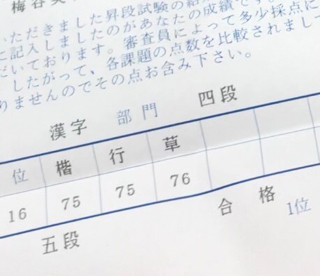 梅谷
いただきました昇段試験の結
ご記入しましたのがあなたの成績です
だいております。審査員によって多少採点に
したがって、各課題の点数を比較されまし
りませんのでその点お含み下さい。
漢字 部門 四段
位 楷 行 草
16 75 75 76
五段 合格 1位